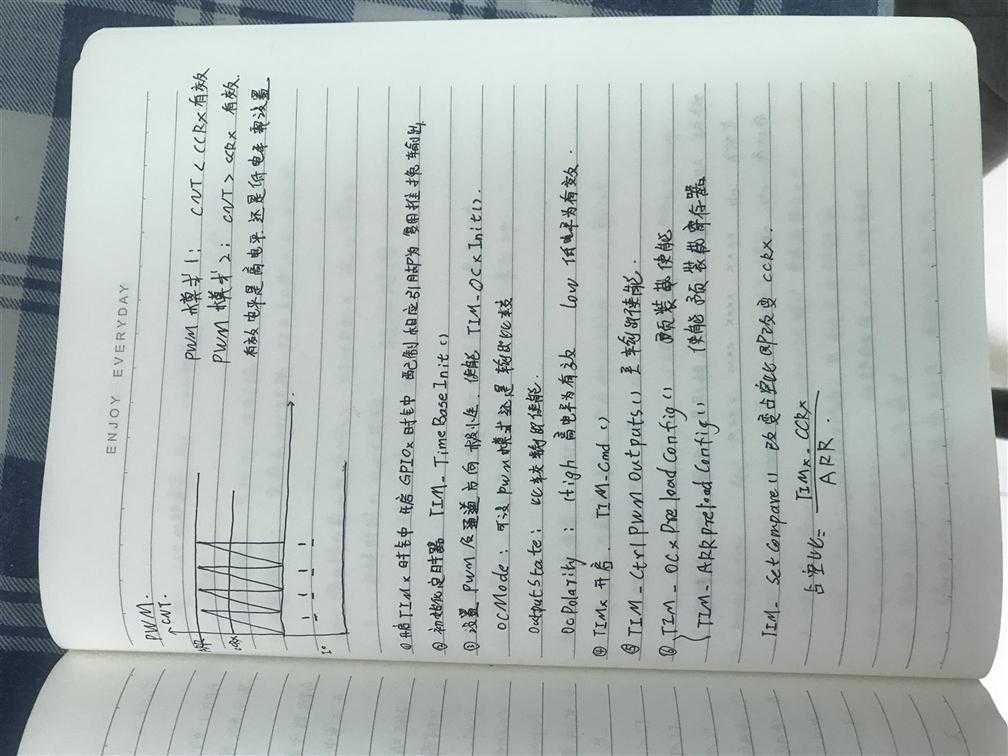 ENJOY EVERYDAY
PWM.
CNT.
ARR
CCRx
PWM模式1: CNT < CCRx 有效
PWM模式2: CNT > CCRx 有效.
有效电平是高电平还是低电平 需设置
① 开启TIMx时钟 开启GPIOx时钟 配制相应引脚为复用推挽输出
② 初始化定时器 TIM_TimeBaseInit()
③ 设置PWM及通道方向 极性, 使能 TIM_OCxInit().
OCMode: 可设PWM模式还是输出比较
OutputState: 比较输出使能.
OCPolarity: High 高电平为有效 Low 低电平为有效.
④ TIMx开启. TIM_Cmd()
⑤ TIM_CtrlPWMOutputs() 主输出使能.
⑥ TIM_OCxPreloadConfig() 预装载使能
TIM_ARRPreloadConfig() 使能预装载寄存器
TIM_SetCompare() 改变占空比即改变CCRx.
占空比= TIMx.CCRx
ARR.